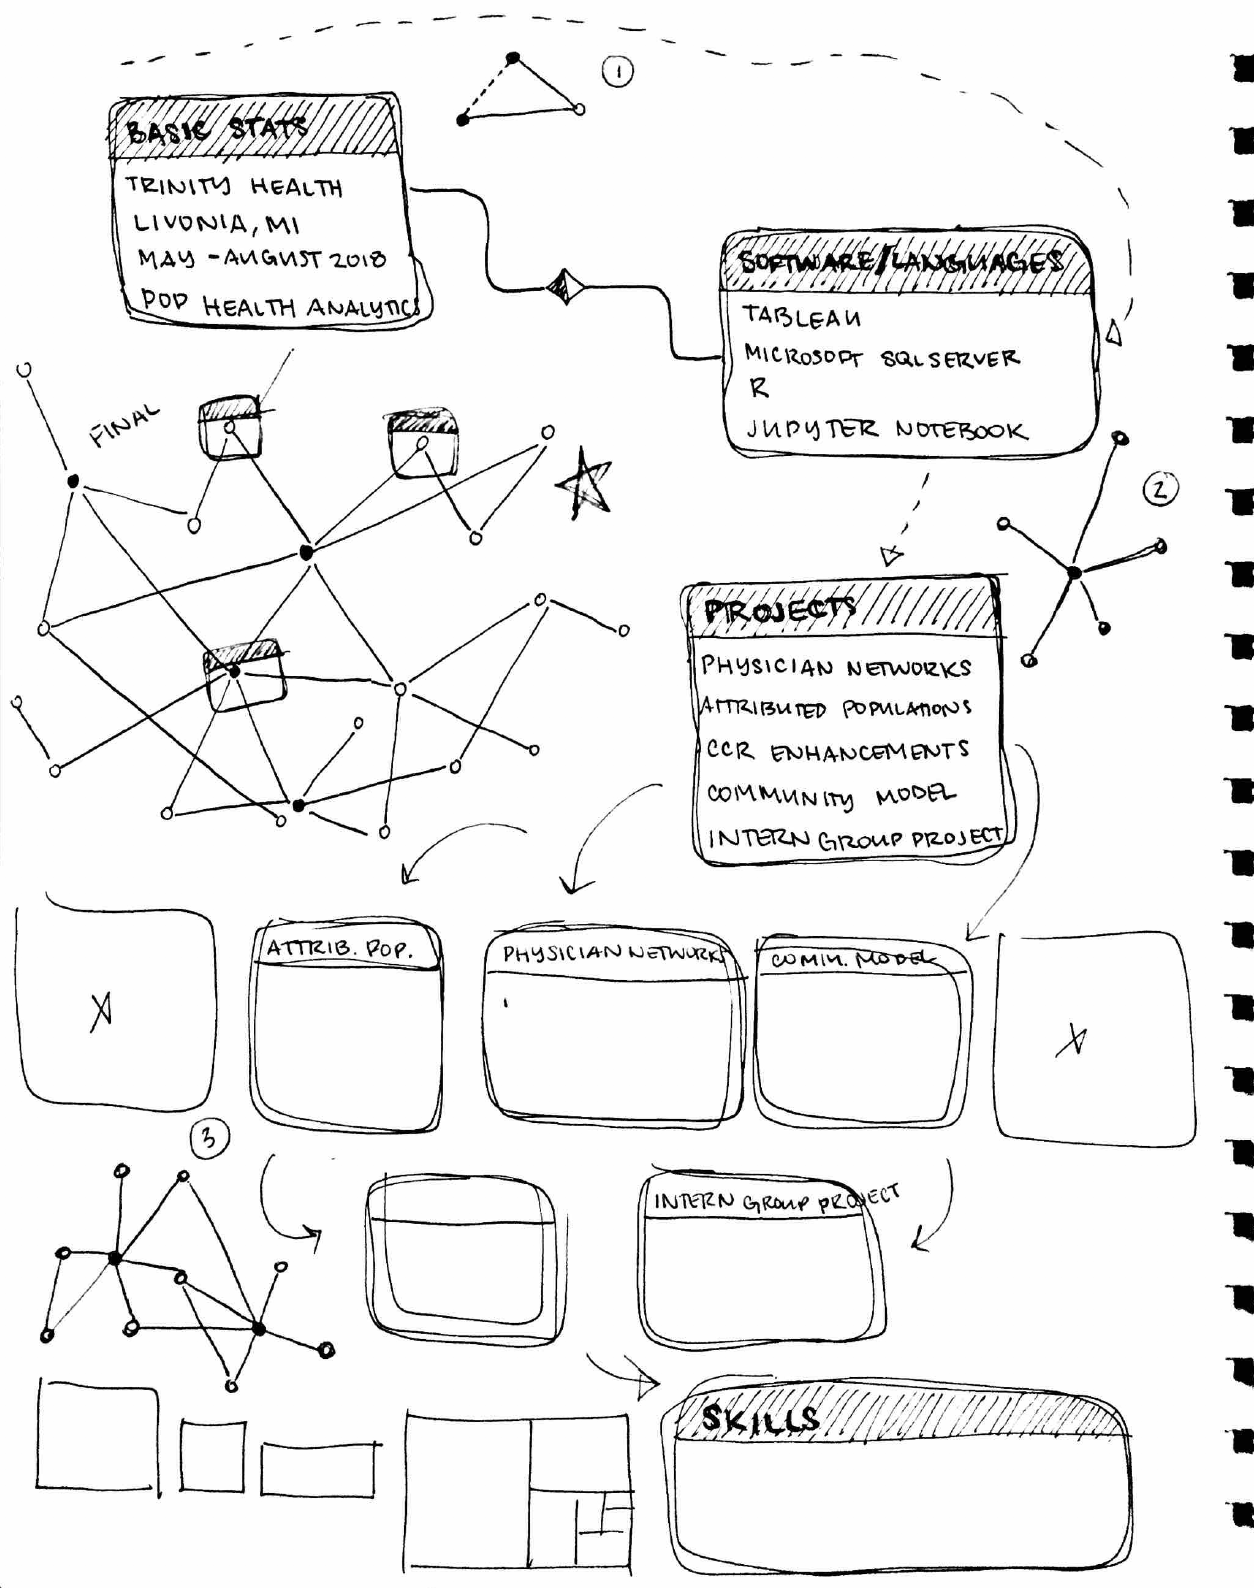 1
BASIC STATS
TRINITY HEALTH
LIVONIA, MI
MAY - AUGUST 2018
POP HEALTH ANALYTICS
SOFTWARE/LANGUAGES
TABLEAU
MICROSOFT SQL SERVER
R
JUPYTER NOTEBOOK
FINAL
2
PROJECTS
PHYSICIAN NETWORKS
ATTRIBUTED POPULATIONS
CCR ENHANCEMENTS
COMMUNITY MODEL
INTERN GROUP PROJECT
ATTRIB. POP.
PHYSICIAN NETWORKS
COMM. MODEL
X
X
3
INTERN GROUP PROJECT
SKILLS